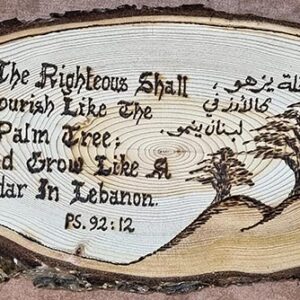 The Righteous Shall
ourish Like The
Palm Tree;
d Grow Like A
dar In Lebanon.
PS. 92:12
لة يزهو ،
كالأرز في
لبنان ينمو .